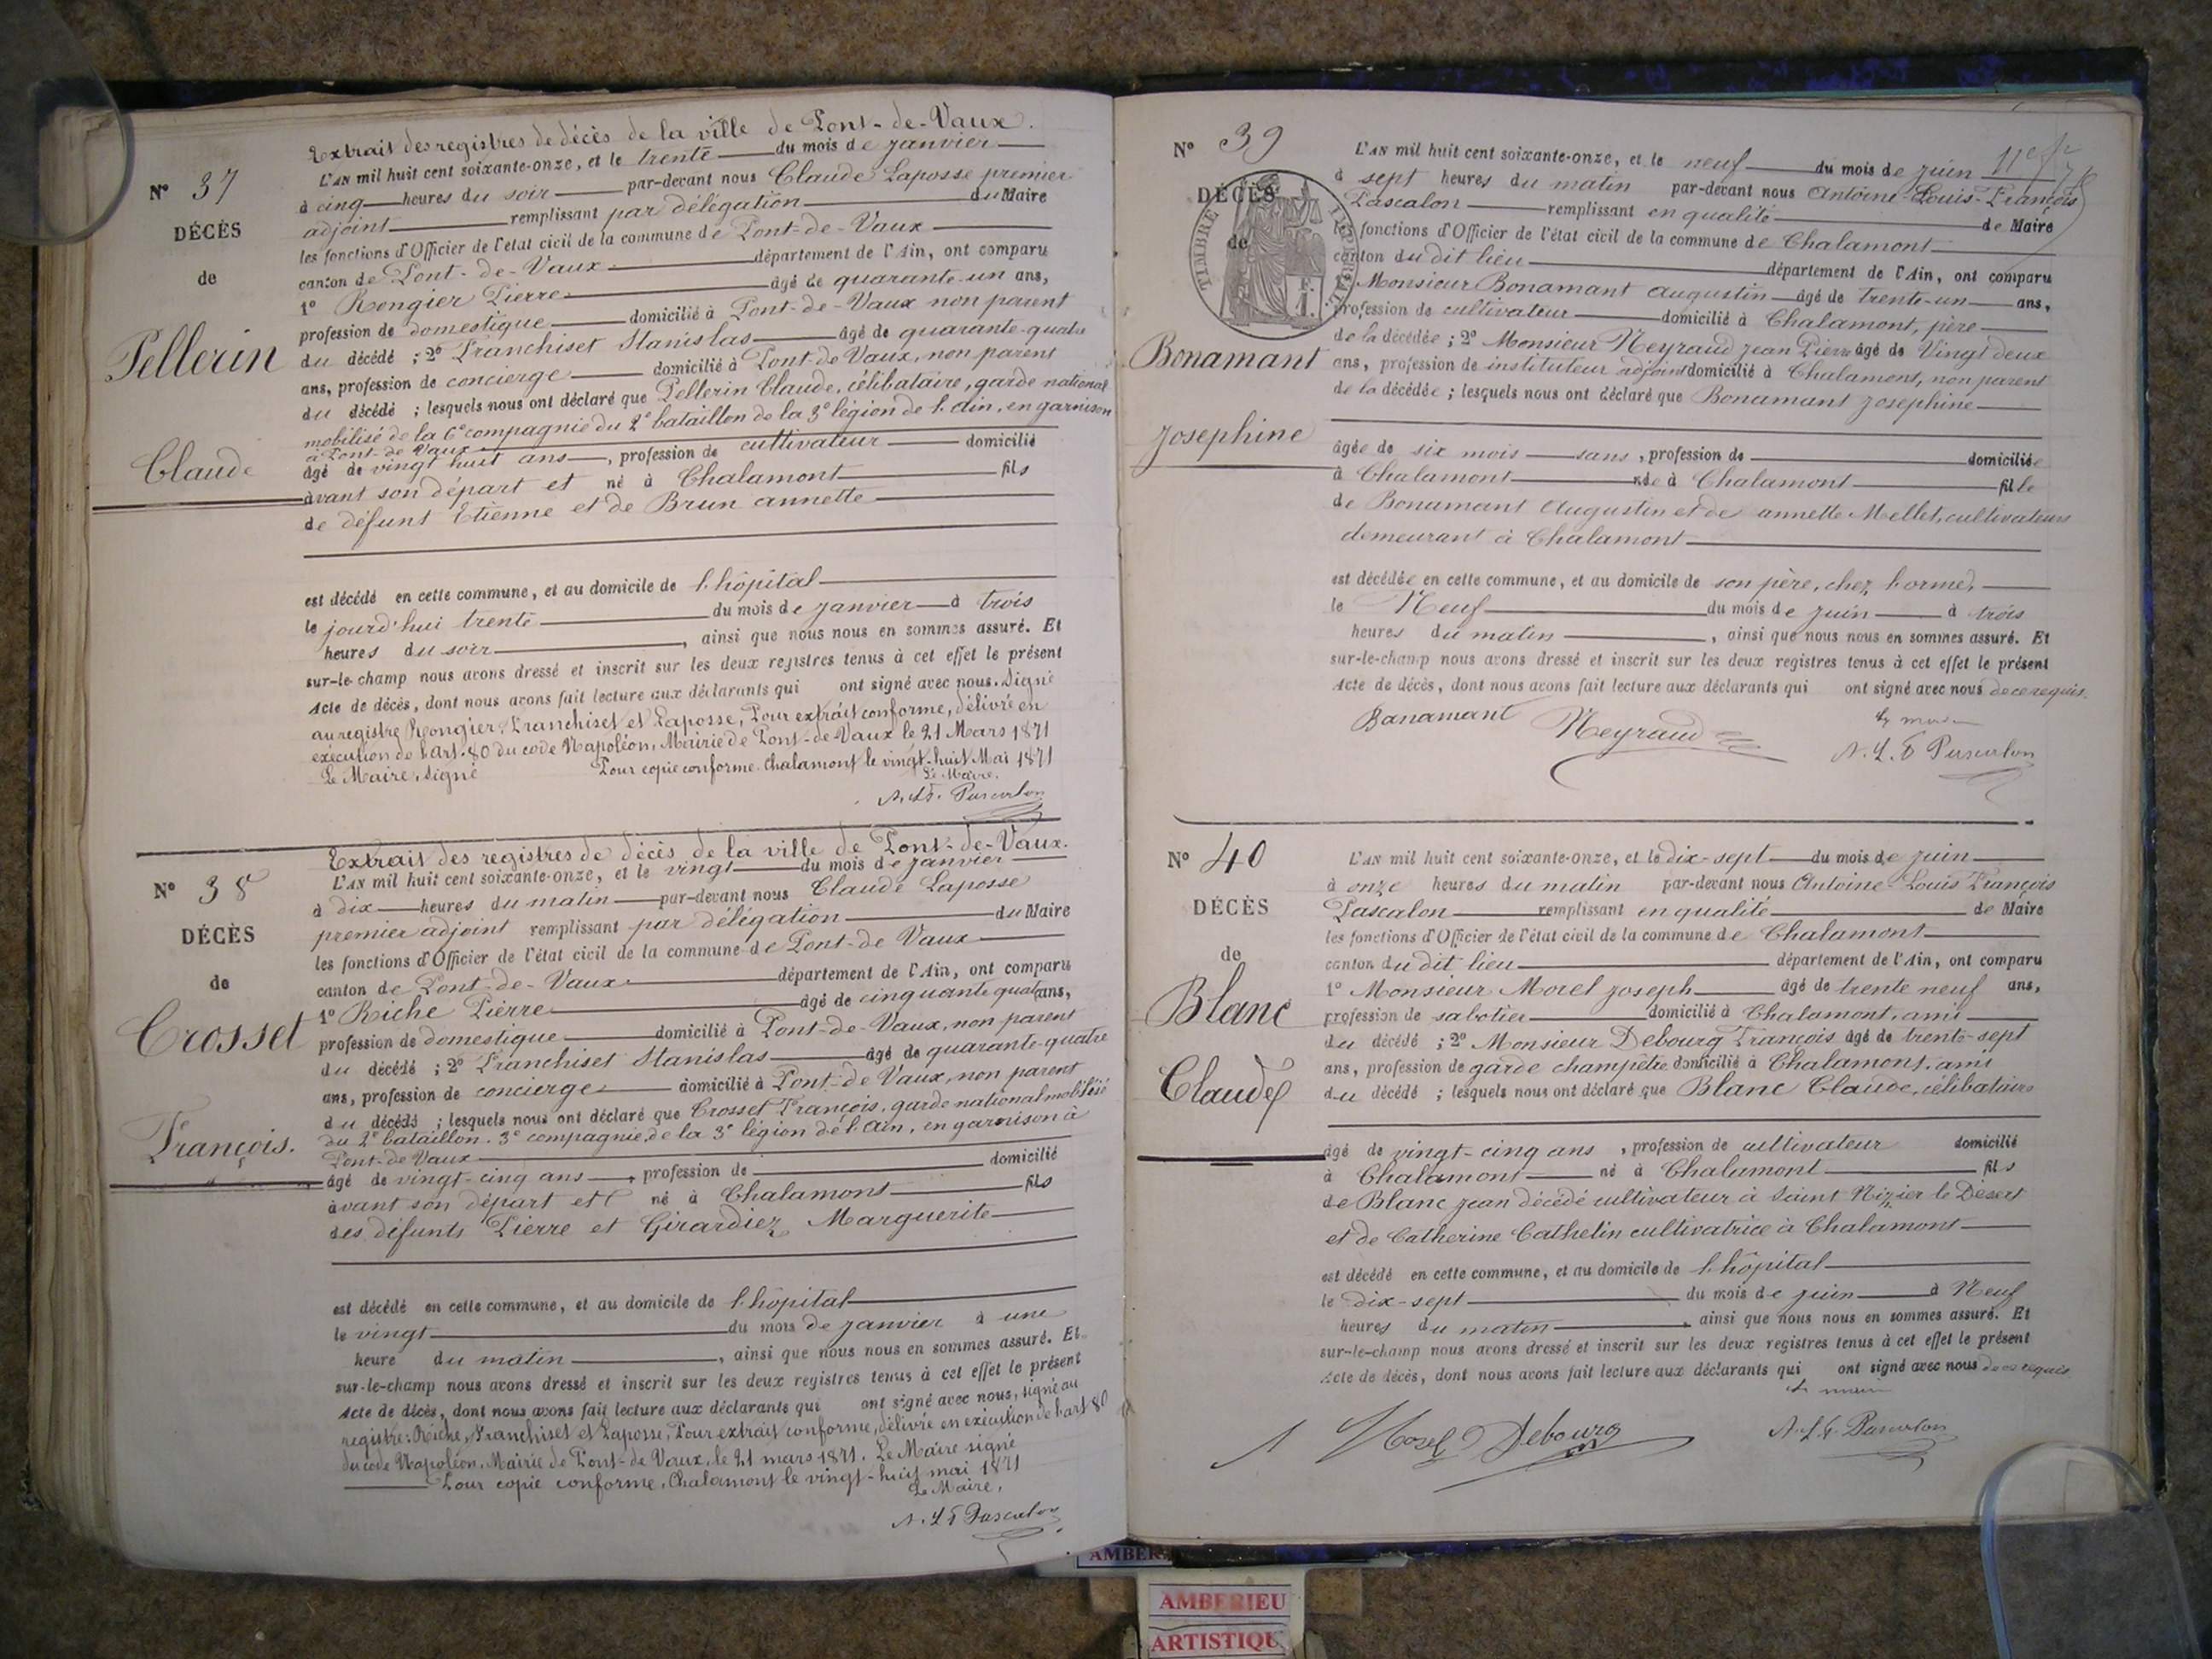 Extrait des registres de décès de la ville de Pont-de-Vaux.
N° 37
L'AN mil huit cent soixante-onze, et le trente du mois de janvier
à cinq heures du soir par-devant nous Claude Laposse premier
adjoint remplissant par délégation du Maire
les fonctions d'Officier de l'état civil de la commune de Pont-de-Vaux
canton de Pont-de-Vaux département de l'Ain, ont comparu
1° Rongier Pierre âgé de quarante-un ans,
profession de domestique domicilié à Pont-de-Vaux non parent
du décédé ; 2° Franchiset Stanislas âgé de quarante-quatre
ans, profession de concierge domicilié à Pont-de-Vaux, non parent
du décédé ; lesquels nous ont déclaré que Pellerin Claude, célibataire, garde national
mobilisé de la 6e compagnie du 2e bataillon de la 3e légion de l'Ain, en garnison
à Pont-de-Vaux
âgé de vingt huit ans, profession de cultivateur domicilié
avant son départ et né à Chalamont fils
de défunt Etienne et de Brun annette
est décédé en cette commune, et au domicile de l'hôpital
le jourd'hui trente du mois de janvier à trois
heures du soir, ainsi que nous nous en sommes assuré. Et
sur-le-champ nous avons dressé et inscrit sur les deux registres tenus à cet effet le présent
Acte de décès, dont nous avons fait lecture aux déclarants qui ont signé avec nous. Signé
au registre Rongier, Franchiset et Laposse, Pour extrait conforme, délivré en
exécution de l'art. 80 du code Napoléon, Mairie de Pont-de-Vaux le 21 Mars 1871
Le Maire, signé Pour copie conforme. Chalamont le vingt-huit Mai 1871
Le Maire.
A. L. F. Pascalon
DÉCÈS
de
Pellerin
Claude
Extrait des registres de décès de la ville de Pont-de-Vaux.
N° 38
L'AN mil huit cent soixante-onze, et le vingt du mois de janvier
à dix heures du matin par-devant nous Claude Laposse
premier adjoint remplissant par délégation du Maire
les fonctions d'Officier de l'état civil de la commune de Pont-de Vaux
canton de Pont-de-Vaux département de l'Ain, ont comparu
1° Riche Pierre âgé de cinquante quatre ans,
profession de domestique domicilié à Pont-de-Vaux, non parent
du décédé ; 2° Franchiset Stanislas âgé de quarante-quatre
ans, profession de concierge domicilié à Pont-de Vaux, non parent
du décédé ; lesquels nous ont déclaré que Crosset François, garde national mobilisé
du 2e bataillon. 3e compagnie, de la 3e légion de l'Ain, en garnison à
Pont-de Vaux
âgé de vingt-cinq ans, profession de domicilié
avant son départ et né à Chalamont fils
des défunts Pierre et Girardiez Marguerite
est décédé en cette commune, et au domicile de l'hôpital
le vingt du mois de janvier à une
heure du matin, ainsi que nous nous en sommes assuré. Et
sur-le-champ nous avons dressé et inscrit sur les deux registres tenus à cet effet le présent
Acte de décès, dont nous avons fait lecture aux déclarants qui ont signé avec nous, signé au
registre: Riche, Franchiset et Laposse, Pour extrait conforme, délivré en exécution de l'art 80
du code Napoléon, Mairie de Pont-de Vaux, le 21 mars 1871. Le Maire signé
Pour copie conforme, Chalamont le vingt-huit mai 1871
Le Maire,
A. L. F. Pascalon
DÉCÈS
de
Crosset
François.
N° 39
L'AN mil huit cent soixante-onze, et le neuf du mois de juin
à sept heures du matin par-devant nous Antoine-Louis-François
Pascalon remplissant en qualité de Maire
fonctions d'Officier de l'état civil de la commune de Chalamont
canton du dit lieu département de l'Ain, ont comparu
Monsieur Bonamant augustin âgé de trente-un ans,
profession de cultivateur domicilié à Chalamont, père
de la décédée ; 2° Monsieur Neyraud Jean Pierre âgé de Vingt deux
ans, profession de instituteur adjoint domicilié à Chalamont, non parent
de la décédée ; lesquels nous ont déclaré que Bonamant Josephine
âgée de six mois ans, profession de domiciliée
à Chalamont née à Chalamont fille
de Bonamant Augustin et de annette Mellet, cultivateurs
demeurant à Chalamont
est décédée en cette commune, et au domicile de son père, chez
le Neuf du mois de juin à trois
heures du matin, ainsi que nous nous en sommes assuré. Et
sur-le-champ nous avons dressé et inscrit sur les deux registres tenus à cet effet le présent
Acte de décès, dont nous avons fait lecture aux déclarants qui ont signé avec nous de ce requis.
Bonamant Neyraud
A. L. F. Pascalon
DÉCÈS
de
TIMBRE IMPÉRIAL
1 F.
Bonamant
Josephine
N° 40
L'AN mil huit cent soixante-onze, et le dix-sept du mois de juin
à onze heures du matin par-devant nous Antoine-Louis François
Pascalon remplissant en qualité de Maire
les fonctions d'Officier de l'état civil de la commune de Chalamont
canton du dit lieu département de l'Ain, ont comparu
1° Monsieur Morel Joseph âgé de trente neuf ans,
profession de sabotier domicilié à Chalamont, ami
du décédé ; 2° Monsieur Debourg François âgé de trente-sept
ans, profession de garde champêtre domicilié à Chalamont, ami
du décédé ; lesquels nous ont déclaré que Blanc Claude, célibataire
âgé de vingt-cinq ans, profession de cultivateur domicilié
à Chalamont né à Chalamont fils
de Blanc Jean décédé cultivateur à Saint Nizier le Désert
et de Catherine Cathelin cultivatrice à Chalamont
est décédé en cette commune, et au domicile de l'hôpital
le dix-sept du mois de juin à Neuf
heures du matin, ainsi que nous nous en sommes assuré. Et
sur-le-champ nous avons dressé et inscrit sur les deux registres tenus à cet effet le présent
Acte de décès, dont nous avons fait lecture aux déclarants qui ont signé avec nous de ce requis
Morel Debourg
A. L. F. Pascalon
DÉCÈS
de
Blanc
Claude
AMBERIEU
ARTISTIQU